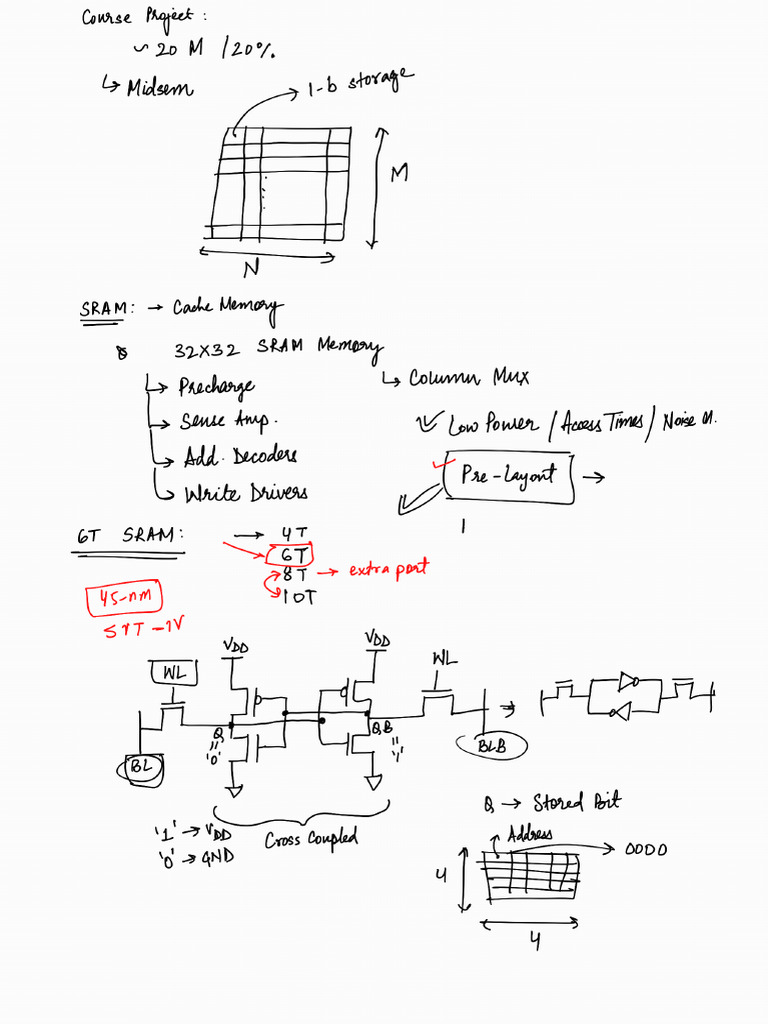 Course Project :
~ 20 M / 20%.
↳ Midsem
→ 1-b storage
M
N
SRAM: → Cache Memory
32X32 SRAM Memory
↳ Column Mux
→ Precharge
→ Sense Amp.
→ Add. Decoders
→ Write Drivers
Low Power / Access Times / Noise M.
Pre-Layout →
6T SRAM:
→ 4T
6T
8T → extra port
10T
45-nm
VDD
VDD
WL
WL
Q
"
'0'
QB
"
'1'
BL
BLB
Cross Coupled
'1' → VDD
'0' → GND
Q → Stored Bit
Address
→ 0000
4
4